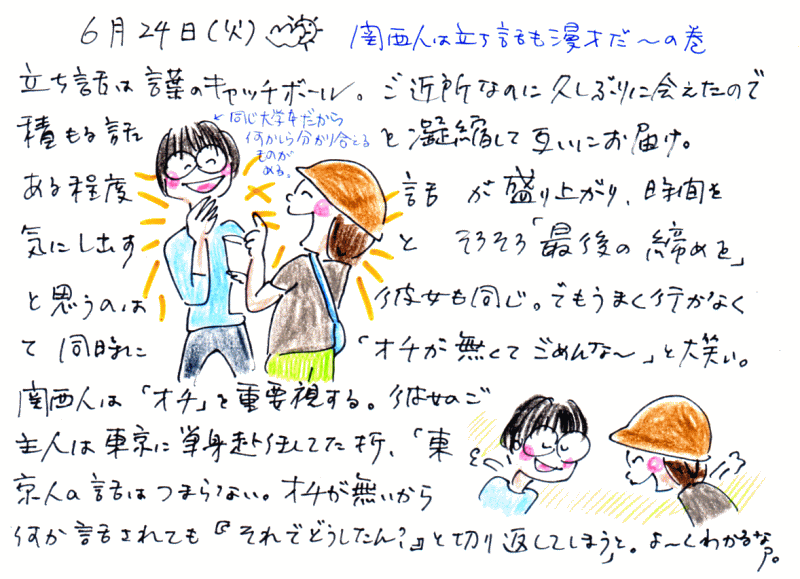 6月24日(火) 関西人は立ち話も漫才だ〜の巻
立ち話は言葉のキャッチボール。ご近所なのに久しぶりに会えたので
積もる話と凝縮して互いにお届け。
←同じ大学卒だから
何かしら分かり合える
ものが
ある。
ある程度話が盛り上がり、時間を
気にし出すとそろそろ「最後の締めを」
と思うのは彼女も同じ。でもうまく行かなく
て同時に「オチが無くてごめんな〜」と大笑い。
関西人は「オチ」を重要視する。彼女のご
主人は東京に単身赴任してた折、「東
京人の話はつまらない。オチが無いから
何か話されても『それでどうしたん?』と切り返してしまう」と。よ〜くわかるなア。